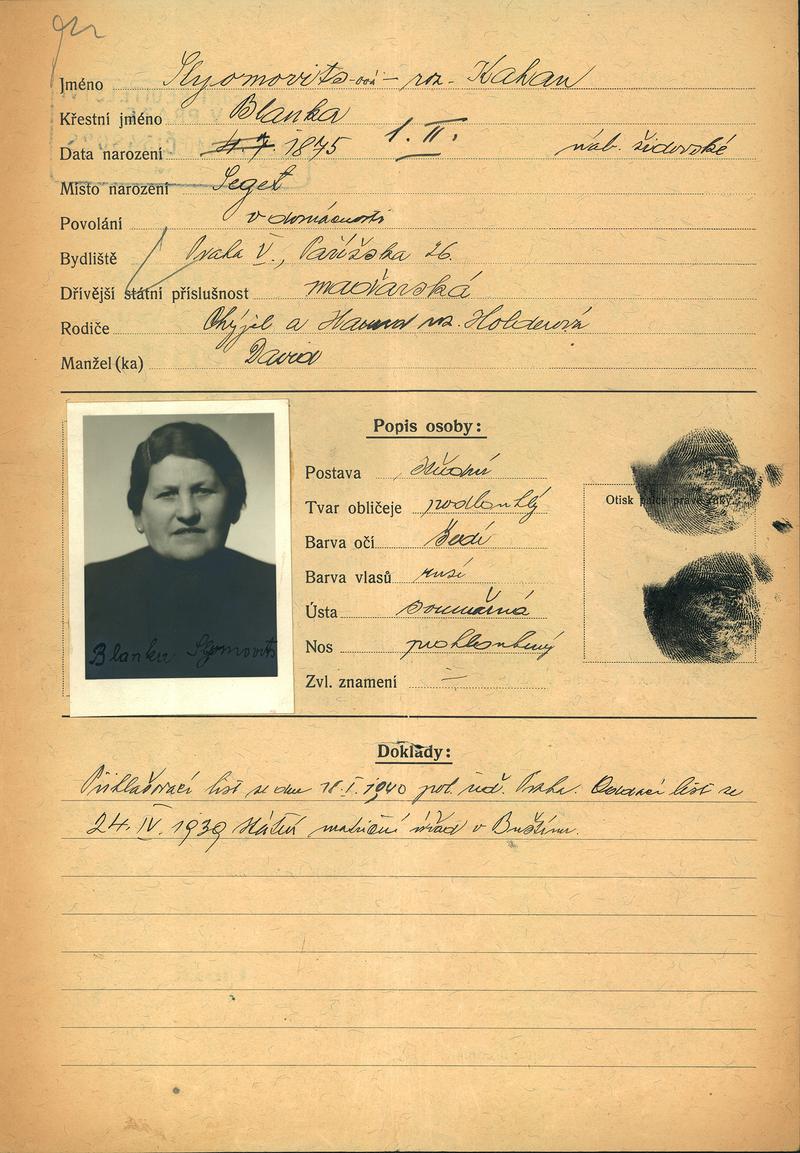 Jméno Slyomovits-ová - roz. Kahan
Křestní jméno Blanka
Data narození 4.7. 1875 1. II. náb. židovské
Místo narození Seget
Povolání v domácnosti
Bydliště Praha V., Pařížska 26.
Dřívější státní příslušnost maďarská
Rodiče a roz. Holderová
Manžel(ka) David
Popis osoby:
Postava střední
Tvar obličeje podlouhlý
Barva očí šedí
Barva vlasů rusí
Ústa souměrná
Nos prohloubený
Zvl. znamení =
Otisk palce pravé ruky
Blanka Slyomovits
Doklady:
Přihlašovací list ze dne 18.I.1940 pol. řed. Praha. Oddací list ze
24. IV. 1939 Státní matriční úřad v Buštinu.